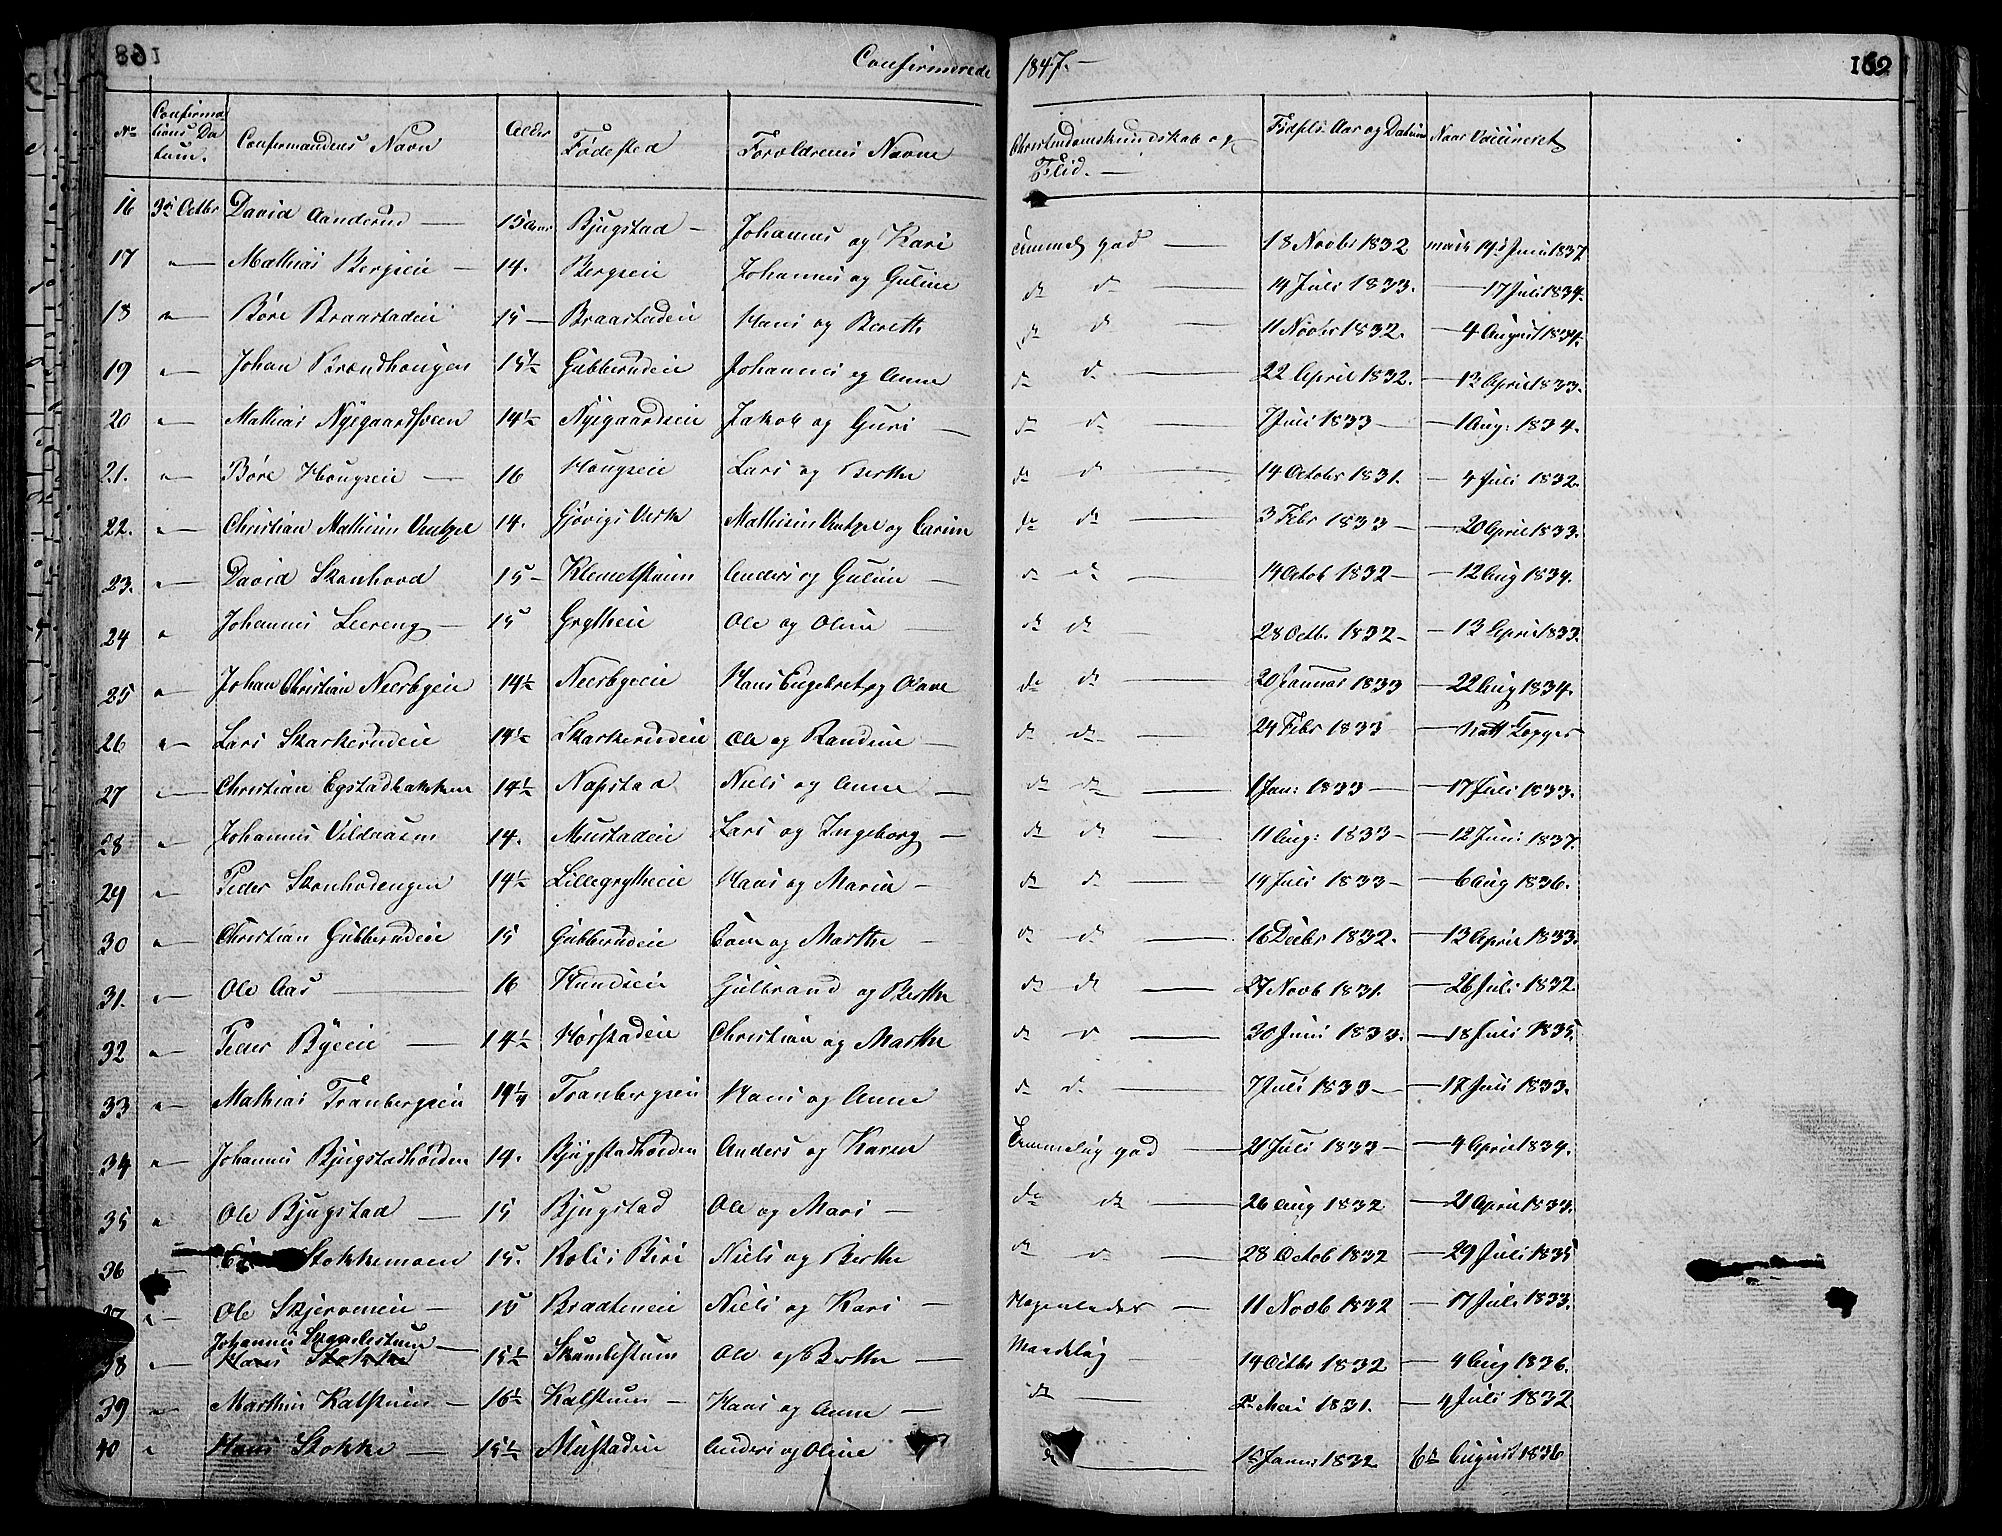 168 Confirmerede 1847. 169
No Confirmations Datum. Confirmandens Navn Alder Fødested Forældrenes Navne Christendomskundskab og Flid. Fødsels Aar og Datum Naar Vaccineret
16 3die Octbr David Aanderud 15 Aar Bjugstad Johannes og Kari 18 Novbr 1832 14de Juni 1837
17 " Mathias Bergseie 14. Bergseie Johannes og Guline do do 14 Juli 1833. 17 Juli 1834.
18 " Børe Braastadeie 15 Braastadeie Hans og Berethe do do 11 Novbr 1832. 4 August 1834.
19 " Johan Brændhaugen 15½ Gubberudeie Johannes og Anne do do 22 April 1832. 12 April 1833.
20 " Mathias Nygaardsveen 14½ Nygaardseie Jakob og Guri do do 7 Juli 1833 1 Aug: 1834.
21. " Børe Hougseie 16 Hougseie Lars og Berthe do do 14 Octobr 1831. 4 Juli 1832.
22. " Christian Mathisen Ventzel 14. Gjøvigs Værk Mathisen Ventzel og Carine do do 3 Febr 1833 20 April 1833.
23. " David Skonhovd 15 Klemetstuen Anders og Guline do do 14 Octob 1832 12 Aug 1834.
24 " Johannes Leereng 15 Grytheeie Ole og Oline do do 28 Octb. 1832 13 April 1833.
25 " Johan Christian Neerbyeie 14½ Neerbyeie Hans Engebret og Olave do do 20 Januar 1833 22 Aug 1834.
26 " Lars Skarkerudeie 14½ Skarkerudeie Ole og Randine do do 24 Febr 1833 Natt Kopper
27 " Christian Egstadbakken 14½ Napstad Niels og Anne do do 1 Jan: 1833 17 Juli 1833.
28 " Johannes Vildaasen 14. Mustadeie Lars og Ingeborg do do 11 Aug: 1833 12 Juni 1837.
29 " Peder Skonhodengen 14½ Lillegrytheeie Hans og Maria do do 14 Juli 1833 6 Aug 1836.
30 " Christian Gubberudeie 15 Gubberudeie Even og Marthe do do 16 Decbr 1832. 12 April 1833.
31. " Ole Aas 16 Hundseie Gulbrand og Berthe do do 27 Novb 1831. 26 Juli 1832.
32 " Peder Byeeie 14½ Hørstadeie Christian og Marthe do do 30 Juni 1833. 18 Juli 1835
33 " Mathias Tranbergseie 14¼ Tranbergseie Hans og Anne do do 7 Juli 1833 17 Juli 1833.
34 " Johannes Bjugstadhøiden 14. Bjugstadhøiden Anders og Karen Temmelig god 21 Juli 1833 4 April 1834.
35 " Ole Bjugstad 15 Bjugstad Ole og Mari do do 26 Aug 1832 21 April 1833.
36 Stokkemoen 15. Niels og Berthe do do 28 Octob 1832 29 Juli 1835
37 " Ole Skjerveneie 15 Braateneie Niels og Kari 11 Novb 1832 17 Juli 1833.
38 " Johannes Skumlestuen
Hans Stokke 15½ Skumlestuen Ole og Berthe Maadelig 14 Octbr 1832 4 Aug 1836.
39 " Marthin Kalstuen 16½ Kalstuen Hans og Anne do 2 Mai 1831. 4 Juli 1832
40 " Hans Stokke 15½ Mustadeie Anders og Oline do 18 Januar 1832 6te August 1836